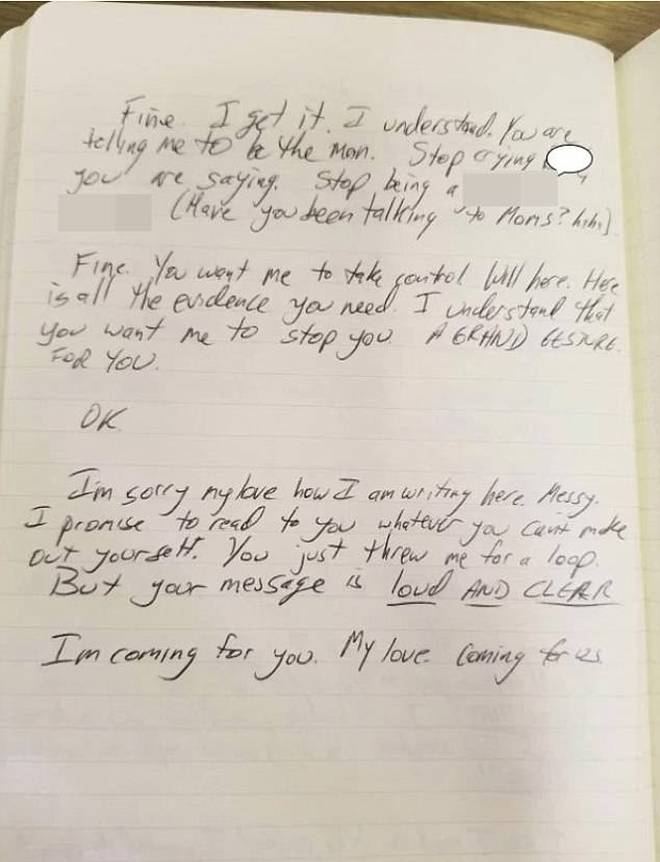 Fine. I get it. I understand. You are
telling me to be the man. Stop crying
you are saying. Stop being a
(Have you been talking to Moms? haha)
Fine. You want me to take control here. Here
is all the evidence you need. I understand that
you want me to stop you. A GRAND GESTURE.
FOR YOU.
OK.
I'm sorry my love how I am writing here. Messy.
I promise to read to you whatever you can't make
out yourself. You just threw me for a loop.
But your message is loud AND CLEAR
Im coming for you. My love. Coming for us